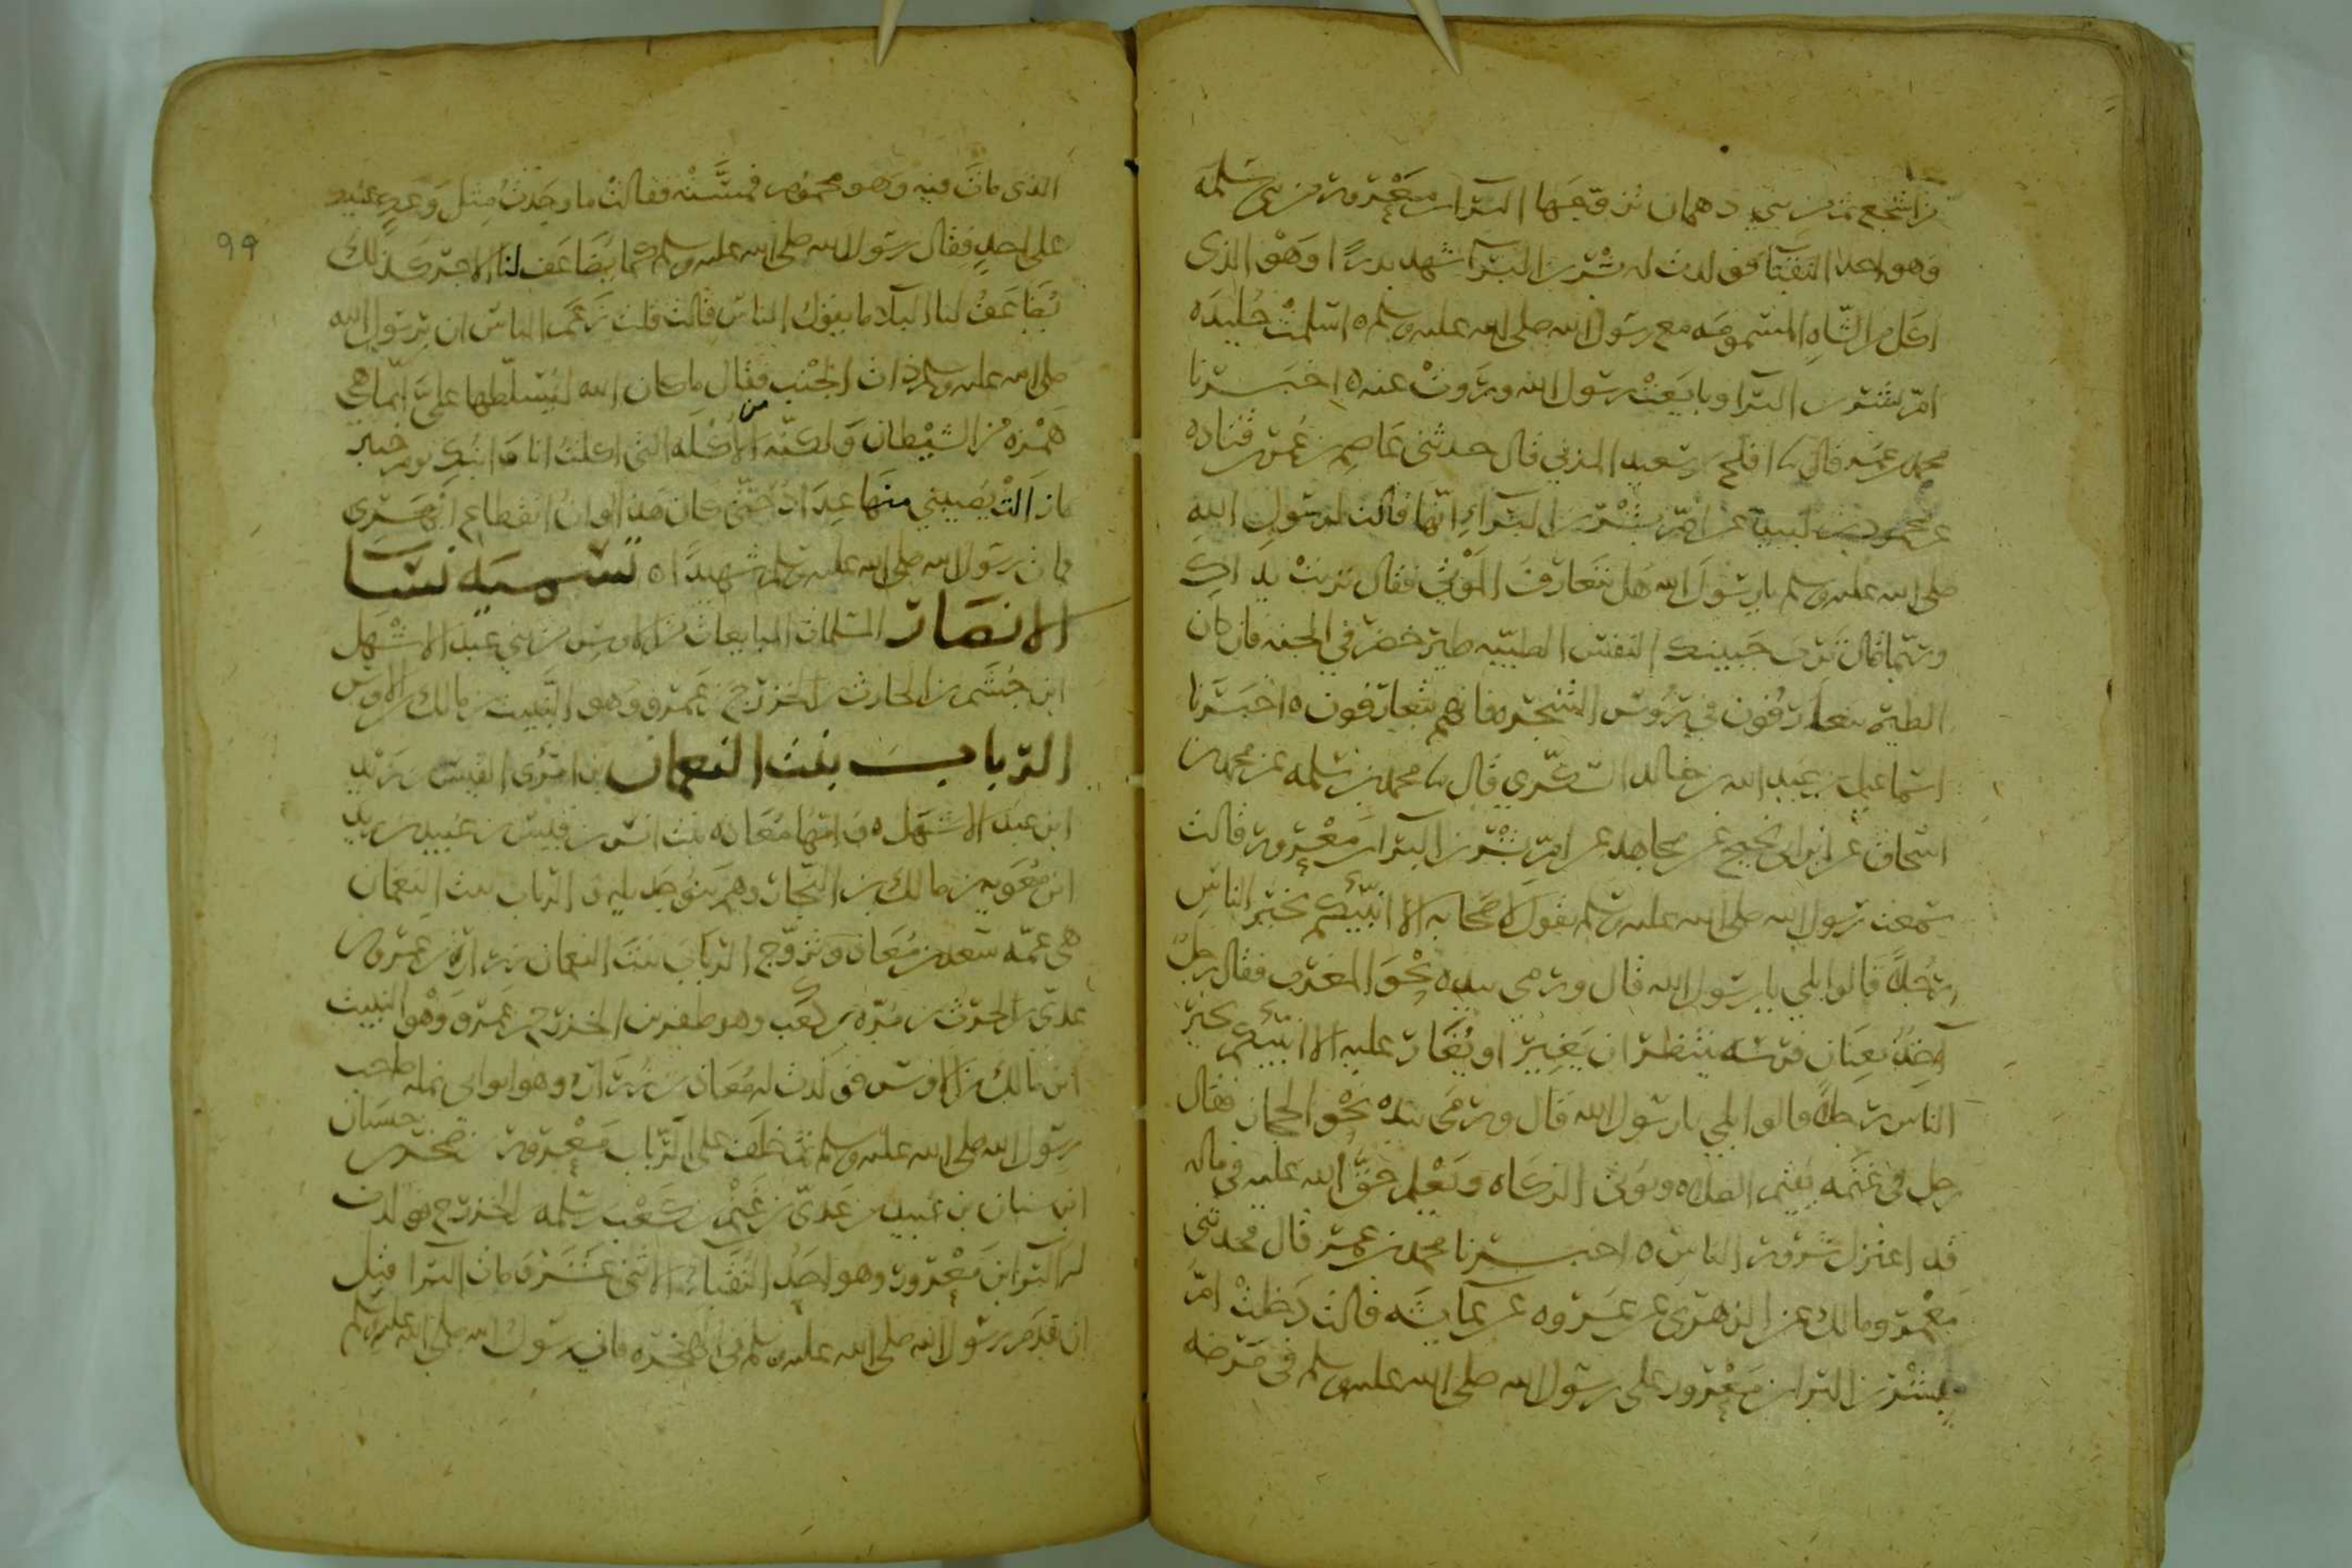 من اشجع ثم من بني دهمان تزوجها البرا بن معرور من بني سلمه
وهو احد النقبا فولدت له بشر بن البرآ شهد بدرًا وهو الذي
اكل من الشاه المسمومه مع رسول الله صلى الله عليه وسلم ه اسلمت خليده
ام بشر بن البرا وبايعت رسول الله وروت عنه ه اخبرنا
محمد بن عمر قال افلح بن سعيد المزني قال حدثني عاصم بن عمر بن قتاده
عن محمود بن لبيد عن ام بشر بن البراء انها قالت لرسول الله
صلى الله عليه وسلم يا رسول الله هل تتعارف الموتى فقال تربت يداك
النفس الطيبه طير خضر في الجنه فان كان
الطير يتعارفون في رؤوس الشجر فانهم يتعارفون ه اخبرنا
اسماعيل بن عبد الله بن خالد السكري قال محمد بن سلمه عن محمد بن
اسحاق عن ابن ابي نجيح عن مجاهد عن ام بشر بن البرا بن معرور قالت
سمعت رسول الله صلى الله عليه وسلم يقول لاصحابه الا انبئكم بخير الناس
رجلاً قالوا بلى يا رسول الله قال ورمى بيده نحو المغرب فقال رجل
آخذ بعنان فرسه ينتظر ان يغير او يغار عليه الا انبئكم بخير
الناس رجلاً قالوا بلى يا رسول الله قال ورمى بيده نحو الحجاز فقال
رجل في غنمه يقيم الصلاه ويوتي الزكاه ويعلم حق الله عليه في ماله
قد اعتزل شرور الناس ه اخبرنا محمد بن عمر قال حدثني
معمر ومالك عن الزهري عن عروه عن عايشه قالت دخلت ام
بشر بن البرا بن معرور على رسول الله صلى الله عليه وسلم في مرضه
٩٩
الذي مات فيه وهو محموم فمسته فقالت ما وجدت مثل وعك عليك
على احد فقال رسول الله صلى الله عليه وسلم كما يضاعف لنا الاجر كذلك
يضاعف لنا البلا ما يقول الناس قالت قلت زعم الناس ان برسول الله
صلى الله عليه وسلم ذات الجنب فقال ما كان الله ليسلطها علي انما هي
همزه من الشيطان ولكنه من الاكله التي اكلت انا وابنك يوم خيبر
ما زالت يصيبني منها عداد حتى كان هذا اوان انقطاع ابهري
فمات رسول الله صلى الله عليه وسلم شهيدًا ه تسميه نسا
الانصار المسلمات المبايعات من الاوس من بني عبد الاشهل
ابن جشم بن الحارث بن الخزرج بن عمرو وهو النبيت بن مالك بن الاوس
الرباب بنت النعمان بن امرئ القيس بن زيد
ابن عبد الاشهل ه وامها معاذه بنت انس بن قيس بن عبيد بن زيد
ابن معويه بن مالك بن النجار وهم بنو جديله والرباب بنت النعمان
هي عمه سعد بن معاذ وتزوج الرباب بنت النعمان زراره بن عمرو بن
عدي بن الحرث بن مره بن كعب وهو ظفر بن الخزرج بن عمرو وهو النبيت
ابن مالك بن الاوس فولدت له معاذ بن زراره وهو ابو ابي نمله صاحب
رسول الله صلى الله عليه وسلم ثم خلف على الرباب معرور بن صخر بن خنسان
ابن سنان بن عبيد بن عدي بن غنم بن كعب بن سلمه من الخزرج فولدت
له البرا بن معرور وهو احد النقباء الاثني عشر ومات البرا قبل
ان يقدم رسول الله صلى الله عليه وسلم في الهجره فاتى رسول الله صلى الله عليه وسلم